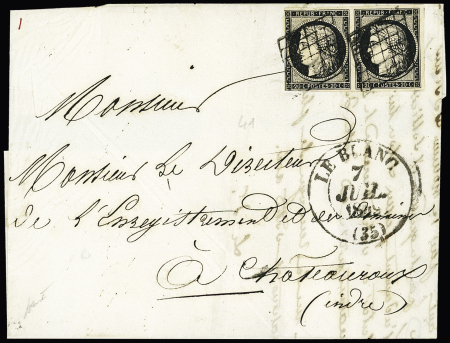 REPUB. FRANC. REPUB. FRANC.
20 C POSTES 20 C 20 C POSTES 20 C
Monsieur
Monsieur Le Directeur
de l'Enregistrement et des Domaines
à Châteauroux
(indre)
LE BLANC
7
JUIL.
(35)